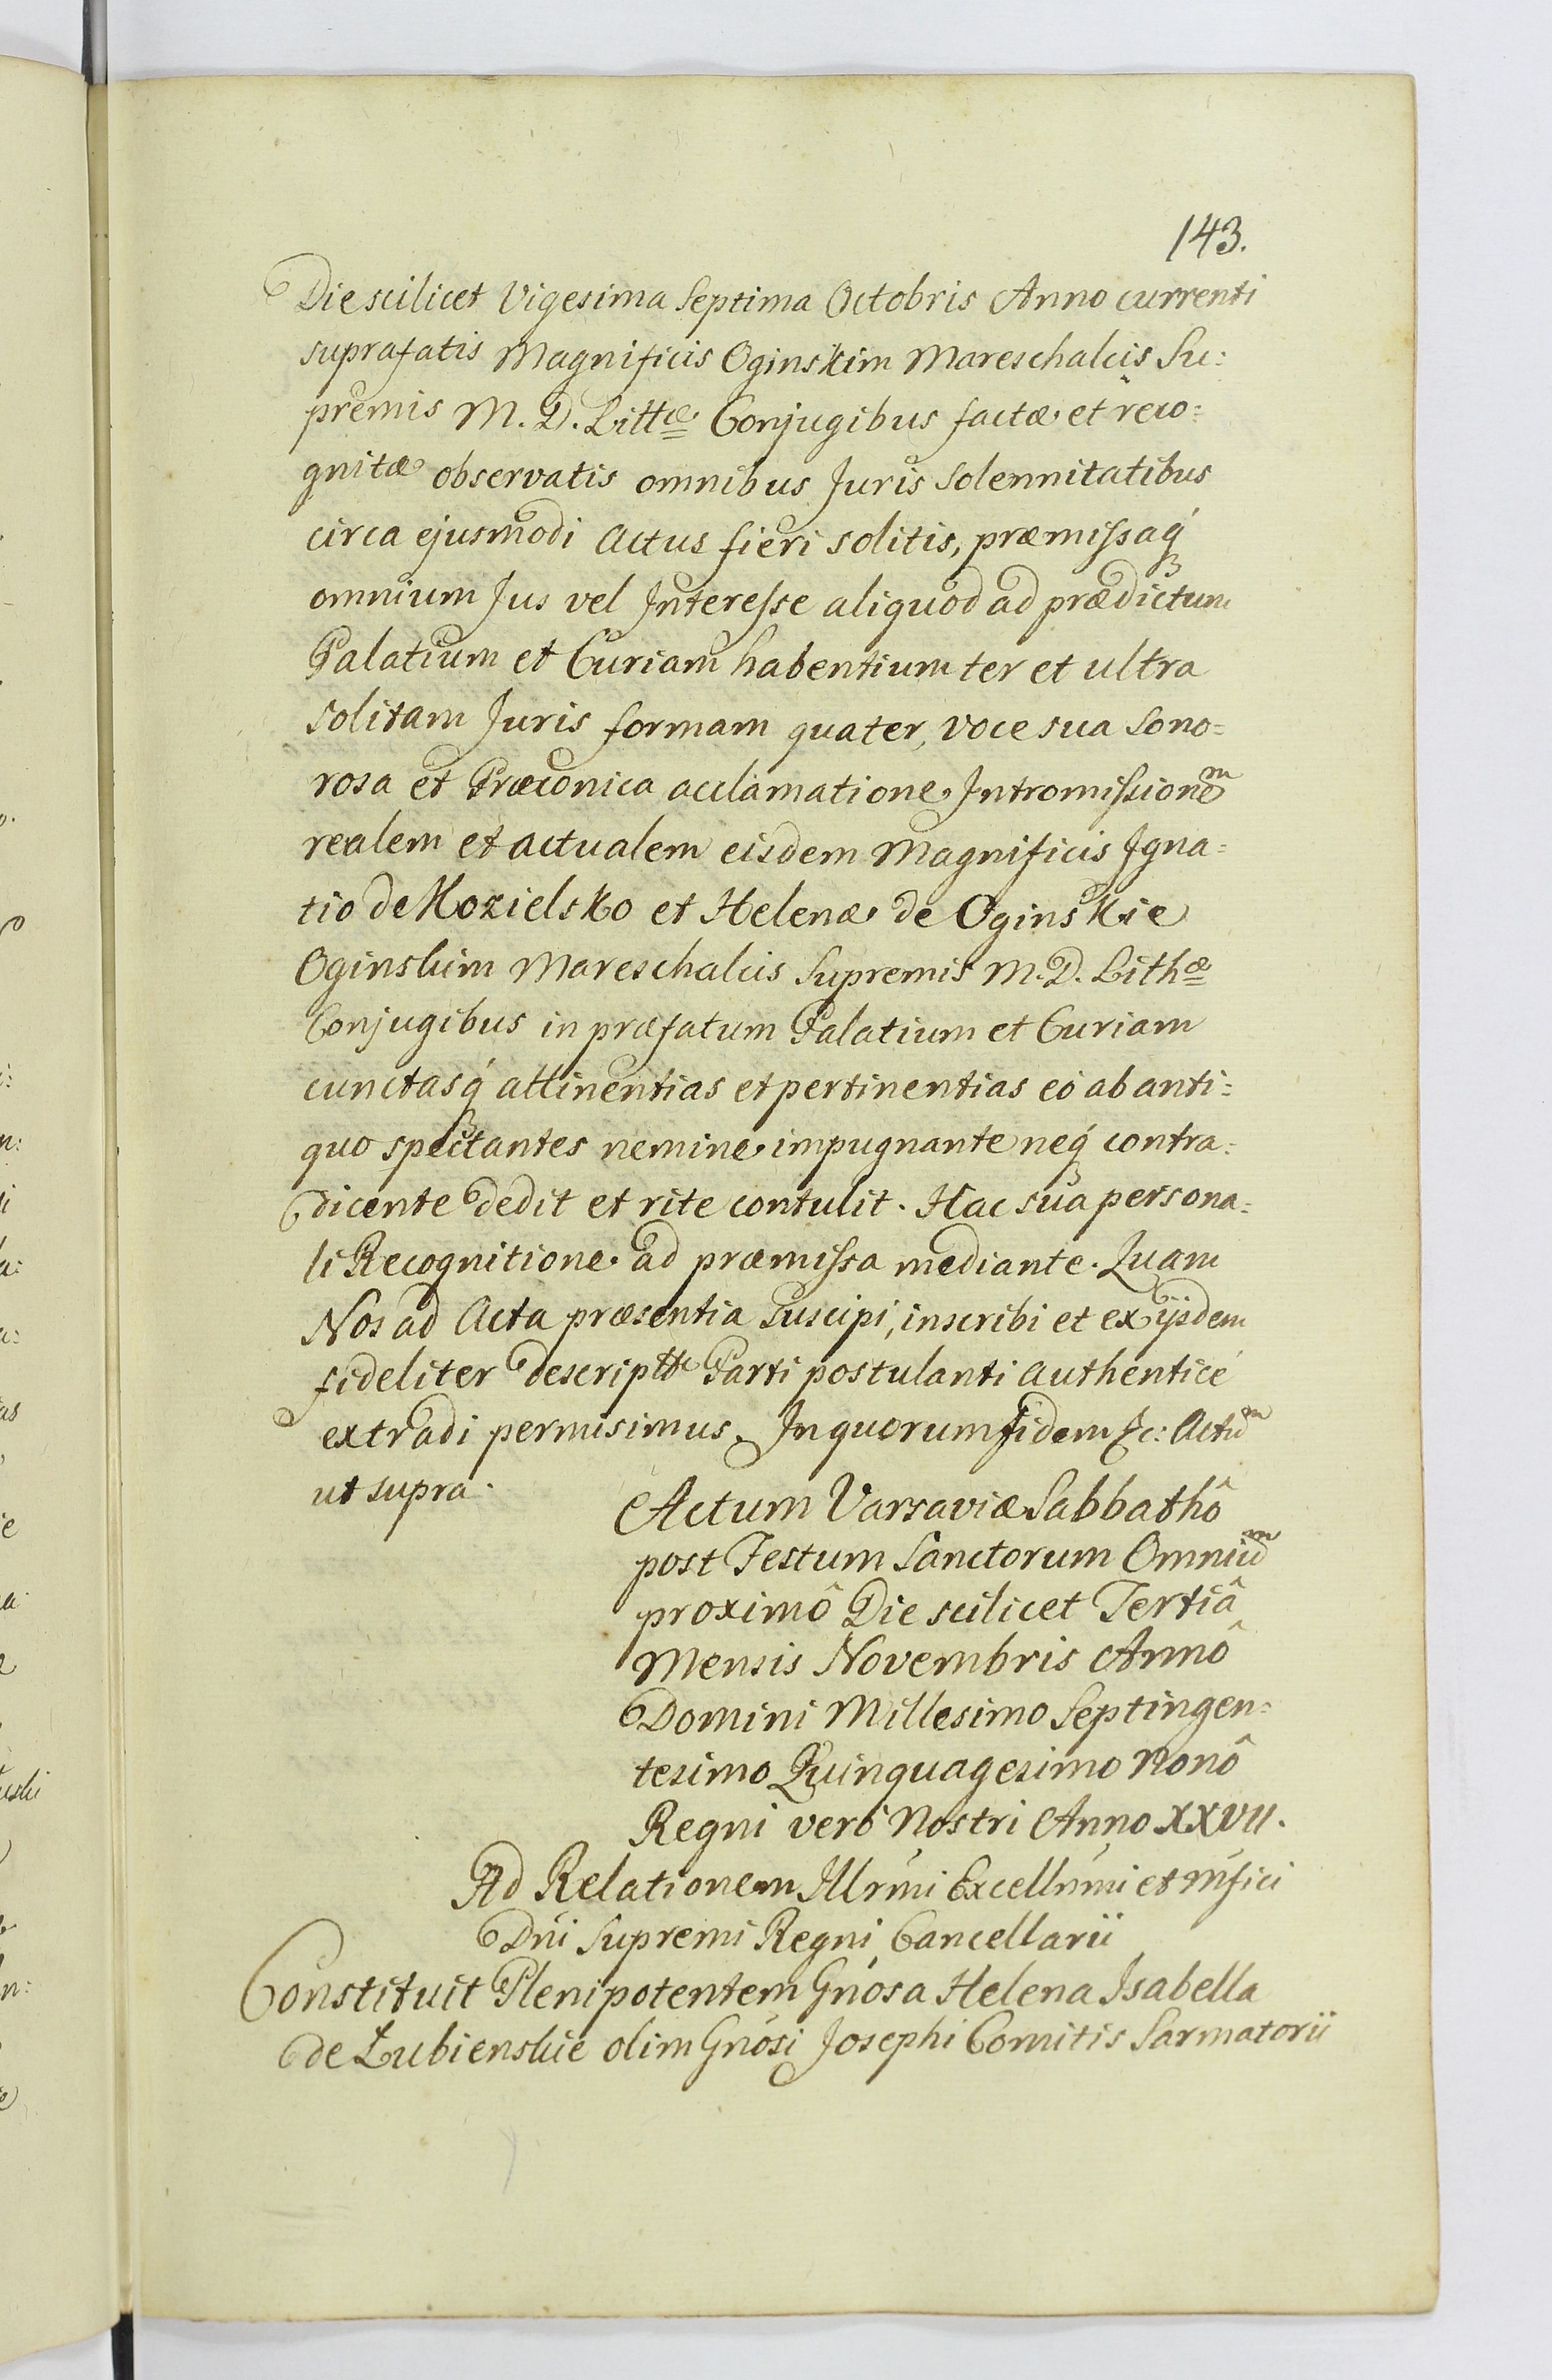 143.
Die scilicet Vigesima Septima Octobris Anno currenti
suprafatis Magnificis Oginskim Mareschalcis Su:
premis M. D. Littæ Conjugibus factæ et reco:
gnitæ observatis omnibus Juris Solennitatibus
circa ejusmodi Actus fieri solitis, præmissaq́
omnium Jus vel Interesse aliquod ad prædictum
Palatium et Curiam habentium ter et ultra
solitam Juris formam quater, voce sua Sono=
rosa et Præconica acclamatione Intromissionem
realem et actualem eisdem Magnificis Igna=
tio de Kozielsko et Helenæ de Oginskie
Oginskim Mareschalcis Supremis M. D. Lithæ
Conjugibus in præfatum Palatium et Curiam
cunctasq́ attinentias et pertinentias eò ab anti=
quo spectantes nemine impugnante neq́ contra=
dicente dedit et rite contulit. Hac sua persona=
li Recognitione ad præmissa mediante. Quam
Nos ad Acta præsentia suscipi, inscribi et ex ijsdem
fideliter descriptte Parti postulanti authenticé
extradi permisimus. In quorum fidem &c: Actum
ut supra.
Actum Varsaviæ Sabbathô
post Festum Sanctorum Omnium
proximô Die scilicet Tertiâ
Mensis Novembris Annô
Domini Millesimo Septingen=
tesimo Quinquagesimo Nonô
Regni verò Nostri Anno XXVII.
Ad Relationem Illrmi Excellnmi et Mfici
Dni Supremi Regni Cancellarii
Constituit Plenipotentem Gnosa Helena Isabella
de Łubienskie olim Gnosi Josephi Comitis Sarmatorii